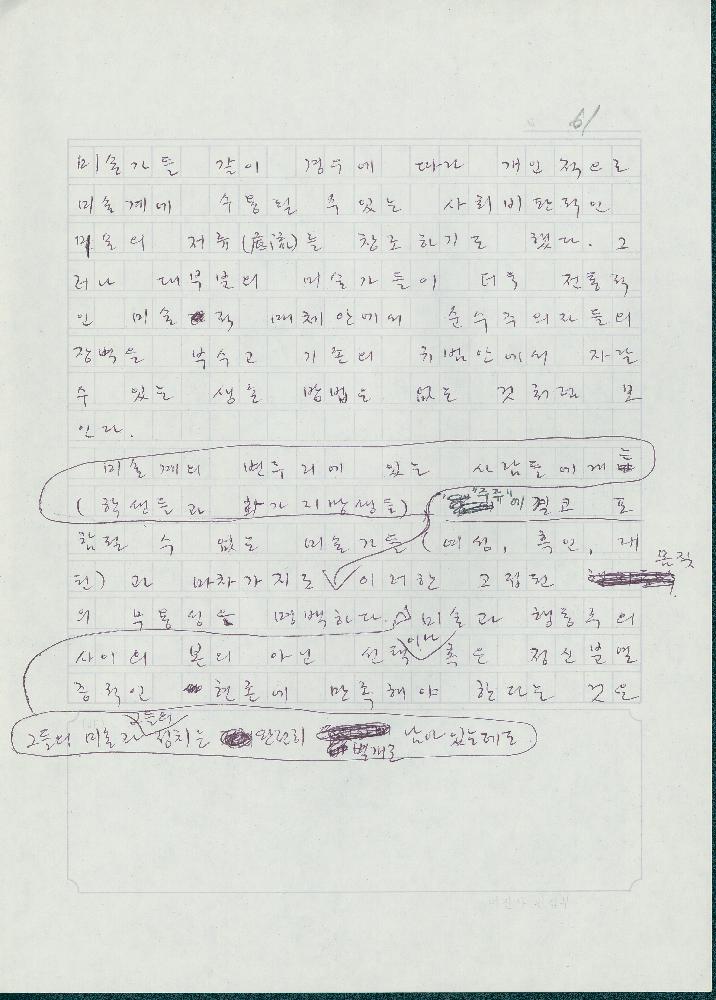 61
미술가들 같이 경우에 따라 개인적으로
미술계에 수통될 수 있는 사회비판적인
미술의 저류(底流)를 창조하기도 했다. 그
러나 대부분의 미술가들이 더욱 전통적
인 미술적 매체안에서 순수주의자들의
장벽을 부수고 기존의 규범안에서 자랄
수 있는 생존 방법은 없는 것처럼 보
인다.
미술계의 변두리에 있는 사람들에게
(학생들과 화가지망생들) "주류"에 결코 포
함될 수 없는 미술가들(여성, 흑인, 재
판)과 마찬가지로 이러한 고집된 목적
의 부통성은 명백하다. 미술과 행동주의
사이의 본의 아닌 선택이나 혹은 정신분열
증적인 현존에 만족해야 한다는 것은
그들의 미술과 그들의 정치는 완전히 별개로 남아있는데도